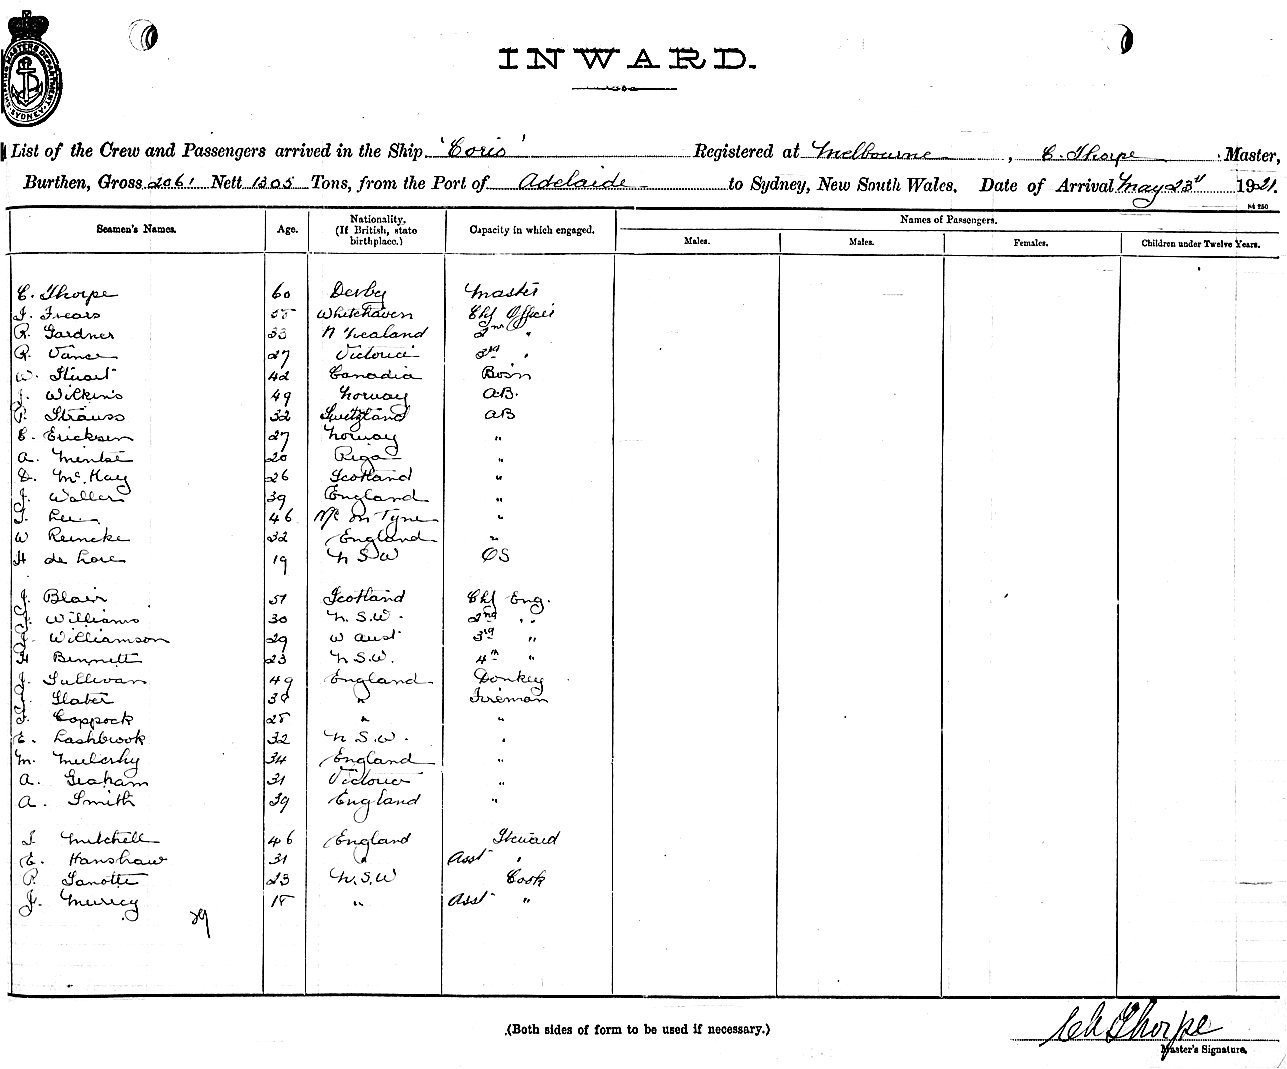 SHIPPING MASTERS DEPARTMENT SYDNEY
INWARD.
List of the Crew and Passengers arrived in the Ship 'Coris' Registered at Melbourne, C. Thorpe Master,
Burthen, Gross 2061 Nett 1305 Tons, from the Port of Adelaide to Sydney, New South Wales, Date of Arrival May 23d 1921.
Seamen's Names. Age. Nationality. (If British, state birthplace.) Capacity in which engaged. Names of Passengers.
Males. Males. Females. Children under Twelve Years.
C. Thorpe 60 Derby Master
Whitehaven Chf Officer
R. Gardner 33 N Zealand 2nd "
R. Vance 27 Victoria 3rd "
W. Stuart 42 Canadia Bosn
J. Wilkins 49 Norway AB.
P. Strauss 32 Switzland AB
E. Ericksen 27 Norway "
A. 20 Riga "
D. McKay 26 Scotland "
J. Waller 39 England "
46 N'c on Tyne "
W Reincke 32 England "
H de Lore 19 N S W OS
J. Blair 51 Scotland Chf Eng.
J. Williams 30 N. S. W. 2nd "
J. Williamson 29 W Aust 3rd "
H Bennett 23 N S.W. 4th "
J. Sullivan 49 England Donkey
J. Slater " Fireman
F. Coppock 25 " "
E. Lashbrook 32 N S.W. "
M. 34 England "
A. Graham 31 Victoria "
A. Smith 39 England "
Mitchell 46 England Steward
E. Hanshaw 31 " Asst "
P. 23 N.S.W Cook
J. " Asst "
29
(Both sides of form to be used if necessary.)
Thorpe
Master's Signature.